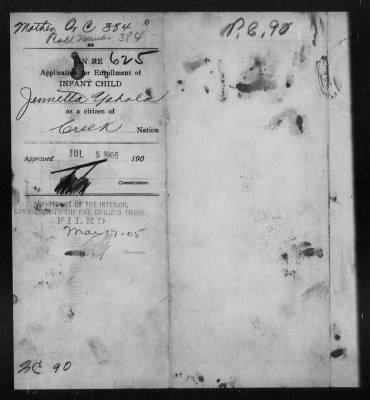 Mother Cr C 384
Roll Number 384
N.C. 90
IN RE 625
Application for Enrollment of
INFANT CHILD
Jennetta Yahola
as a citizen of
Creek Nation
Approved JUL 5 1905 190
Commissioner.
DEPARTMENT OF THE INTERIOR,
COMMISSION TO THE FIVE CIVILIZED TRIBES.
FILED
May 17-05
NC 90